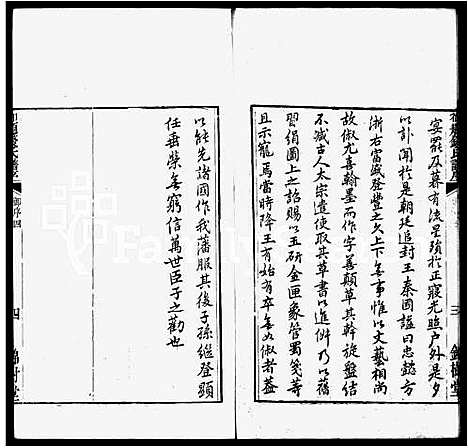 宴罷及暮有流星殞於正寢光照戶外是夕
以訃聞於是朝廷追封王秦國諡曰忠懿方
浙右富盛登豐之久上下無事惟以文藝相高
故俶尤喜翰墨而作字善顛草其斡旋盤結
不減古人太宗遣使取其草書以進俶乃以舊
習絹圖上之詔賜以玉硯金匣象管蜀箋等
且示寵焉當時降王有始有卒無如俶者蓋
以能先諸國作我藩服其後子孫繼登顯
任垂榮無窮信萬世臣子之勸也
御序四
四
錦樹堂
三
錦樹堂